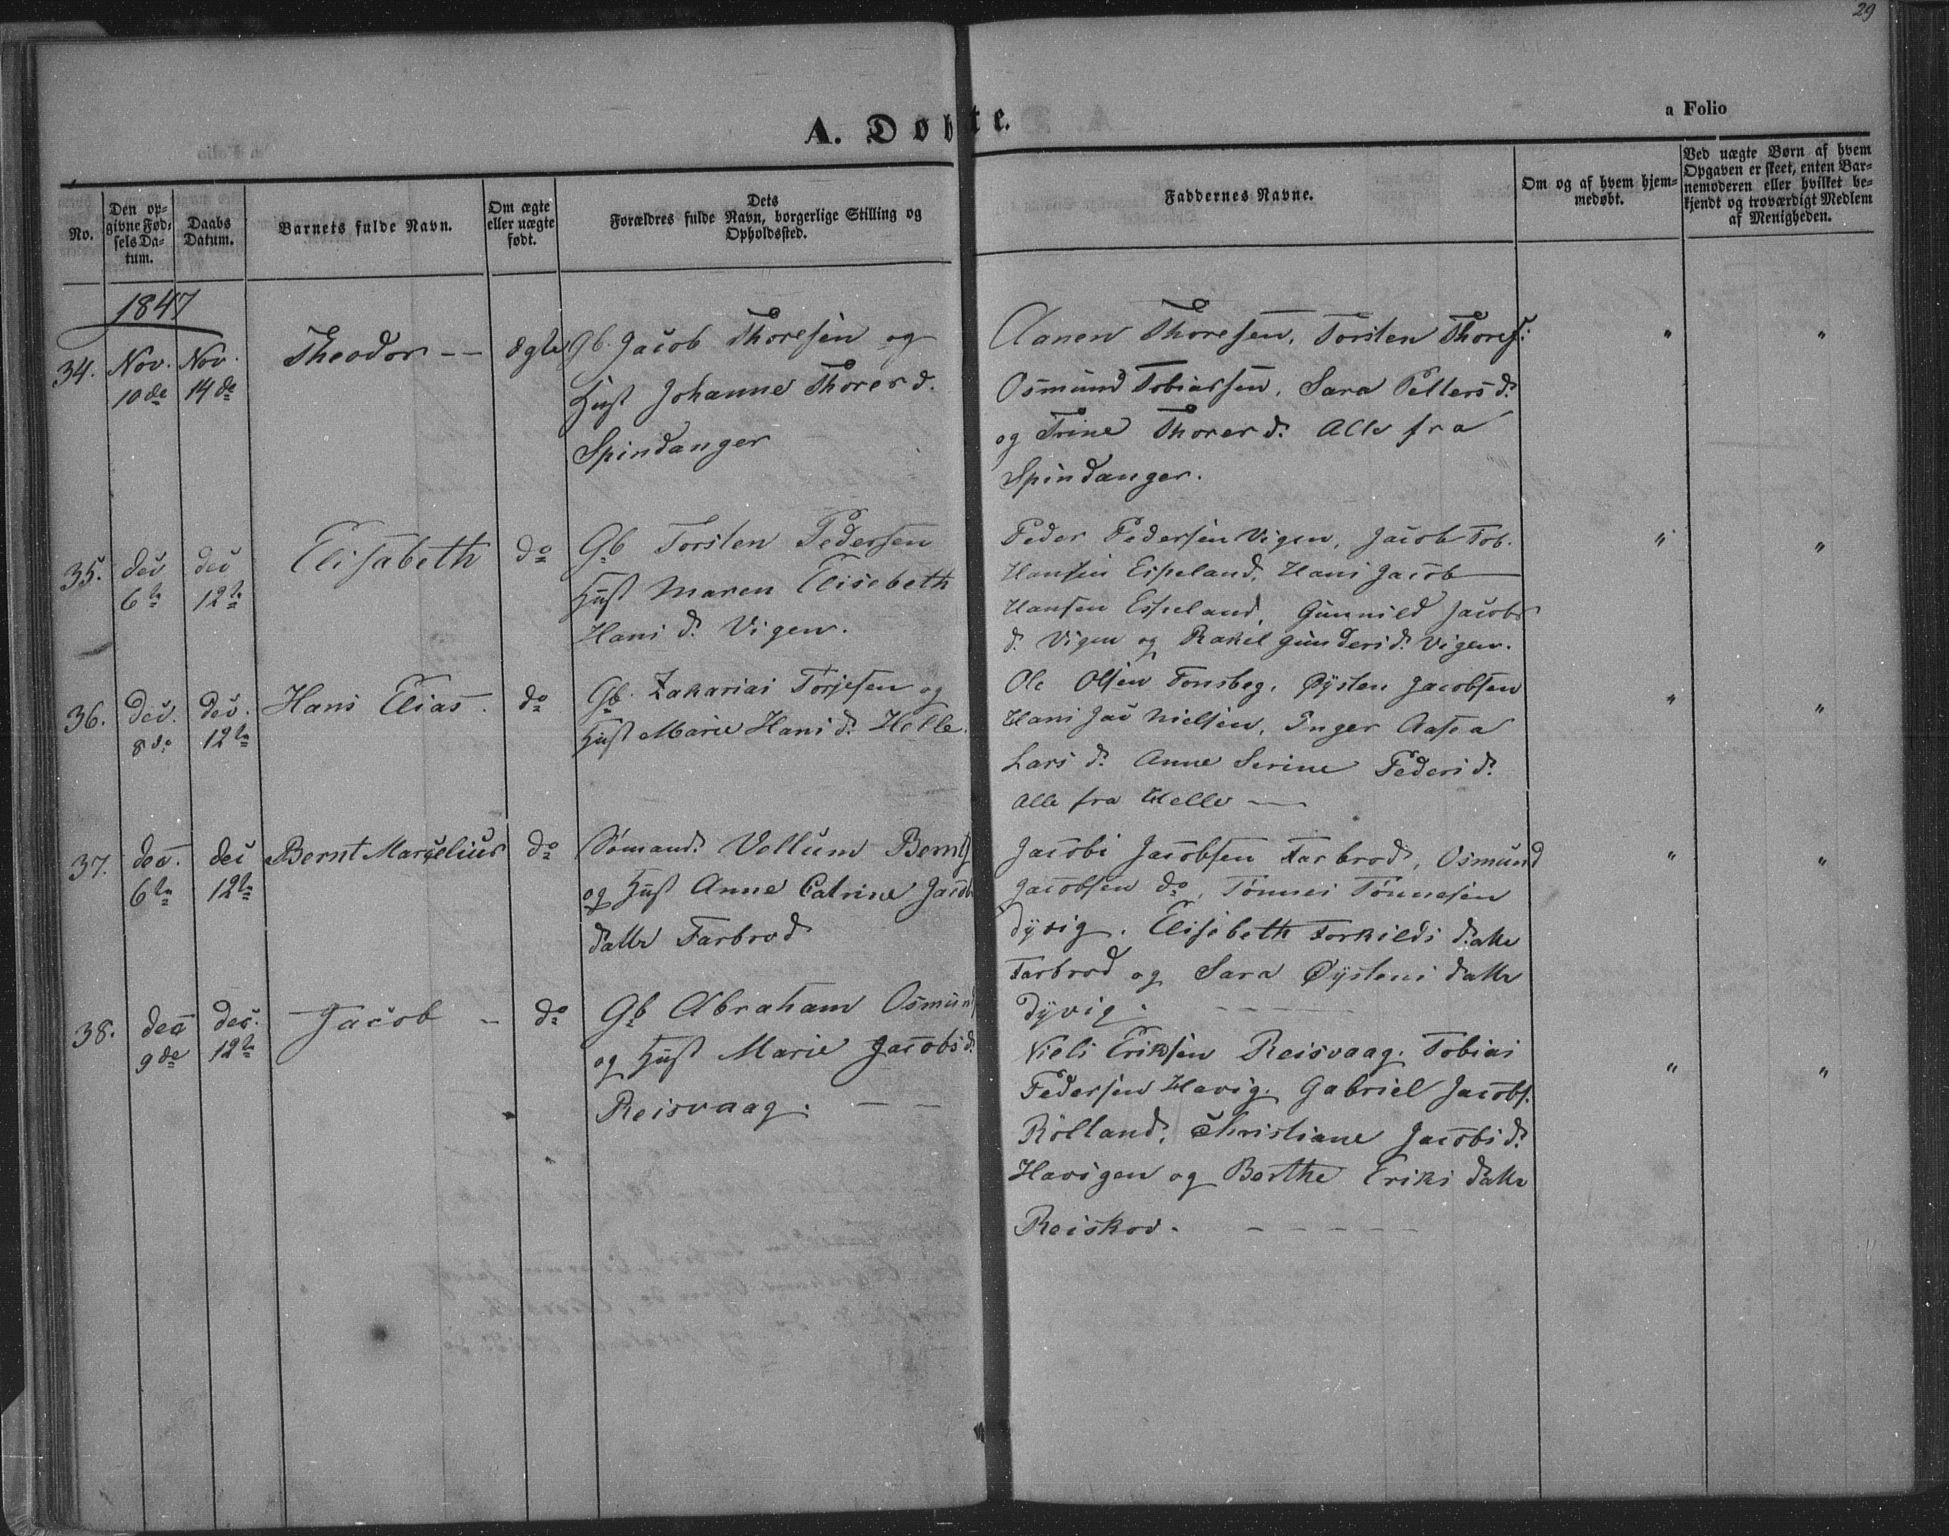 29
A. Døbte.
a Folio
No.
Den op-
givne Fød-
sels Da-
tum.
Daabs
Datum.
Barnets fulde Navn.
Om ægte
eller uægte
født.
Dets
Forældres fulde Navn, borgerlige Stilling og
Opholdssted.
Faddernes Navne.
Om og af hvem hjem-
medøbt.
Ved uægte Børn af hvem
Opgaven er skeet, enten Bar-
nemoderen eller hvilket be-
kjendt og troværdigt Medlem
af Menigheden.
1847
34. Nov. 10de Nov. 14de Theodor -- ægte
Gb. Jacob Thoresen og
Hust Johanne Thores d.
Spindanger
Aanen Thoresen, Torsten Thores:
Osmund Tobiassen, Sara Petters d:
og Trine Thores d: Alle fra
Spindanger.
" "
35. dec 6te dec 12te Elisabeth do
Gb Torsten Pedersen
Hust Maren Elisebeth
Hans d: Vigen.
Peder Pedersen Vigen, Jacob Tob.
Hansen Espeland, Hans Jacob
Hansen Espeland, Gunnild Jacobs
d: Vigen og Rakel Gunders d: Vigen.
" "
36. Dec. 8de Dec. 12te Hans Elias. do
Gb. Zakarias Torjesen og
Hust Marie Hans d: Helle.
Ole Olsen Fonsbeg, Øysten Jacobsen
Hans Jac Nielsen, Inger Aasea
Lars d: Anne Serine Peders d:
Alle fra Helle —
" "
37. dec. 6te dec 12te Bernt Marselius do
Sømand. Vellum Bernts
og Hust Anne Catrine Jacobs
datter Farbrod
Jacobs Jacobsen Farbrod, Osmund
Jacobsen do, Tønnes Tønnesen
Dyvig. Elisebeth Torkilds datter
Farbrod og Sara Øystens datter
Dyvig. - - - -
" "
38. dec 9de dec. 12te Jacob - do
Gb Abraham Osmun
og Hust Marie Jacobs d:
Reisvaag. — —
Niels Eriksen Reisvaag. Tobias
Pedersen Havig, Gabriel Jacobs.
Rølland, Christiane Jacobs d:
Havigen og Berthe Eriks datter
Reiskod. - - - - -
" "